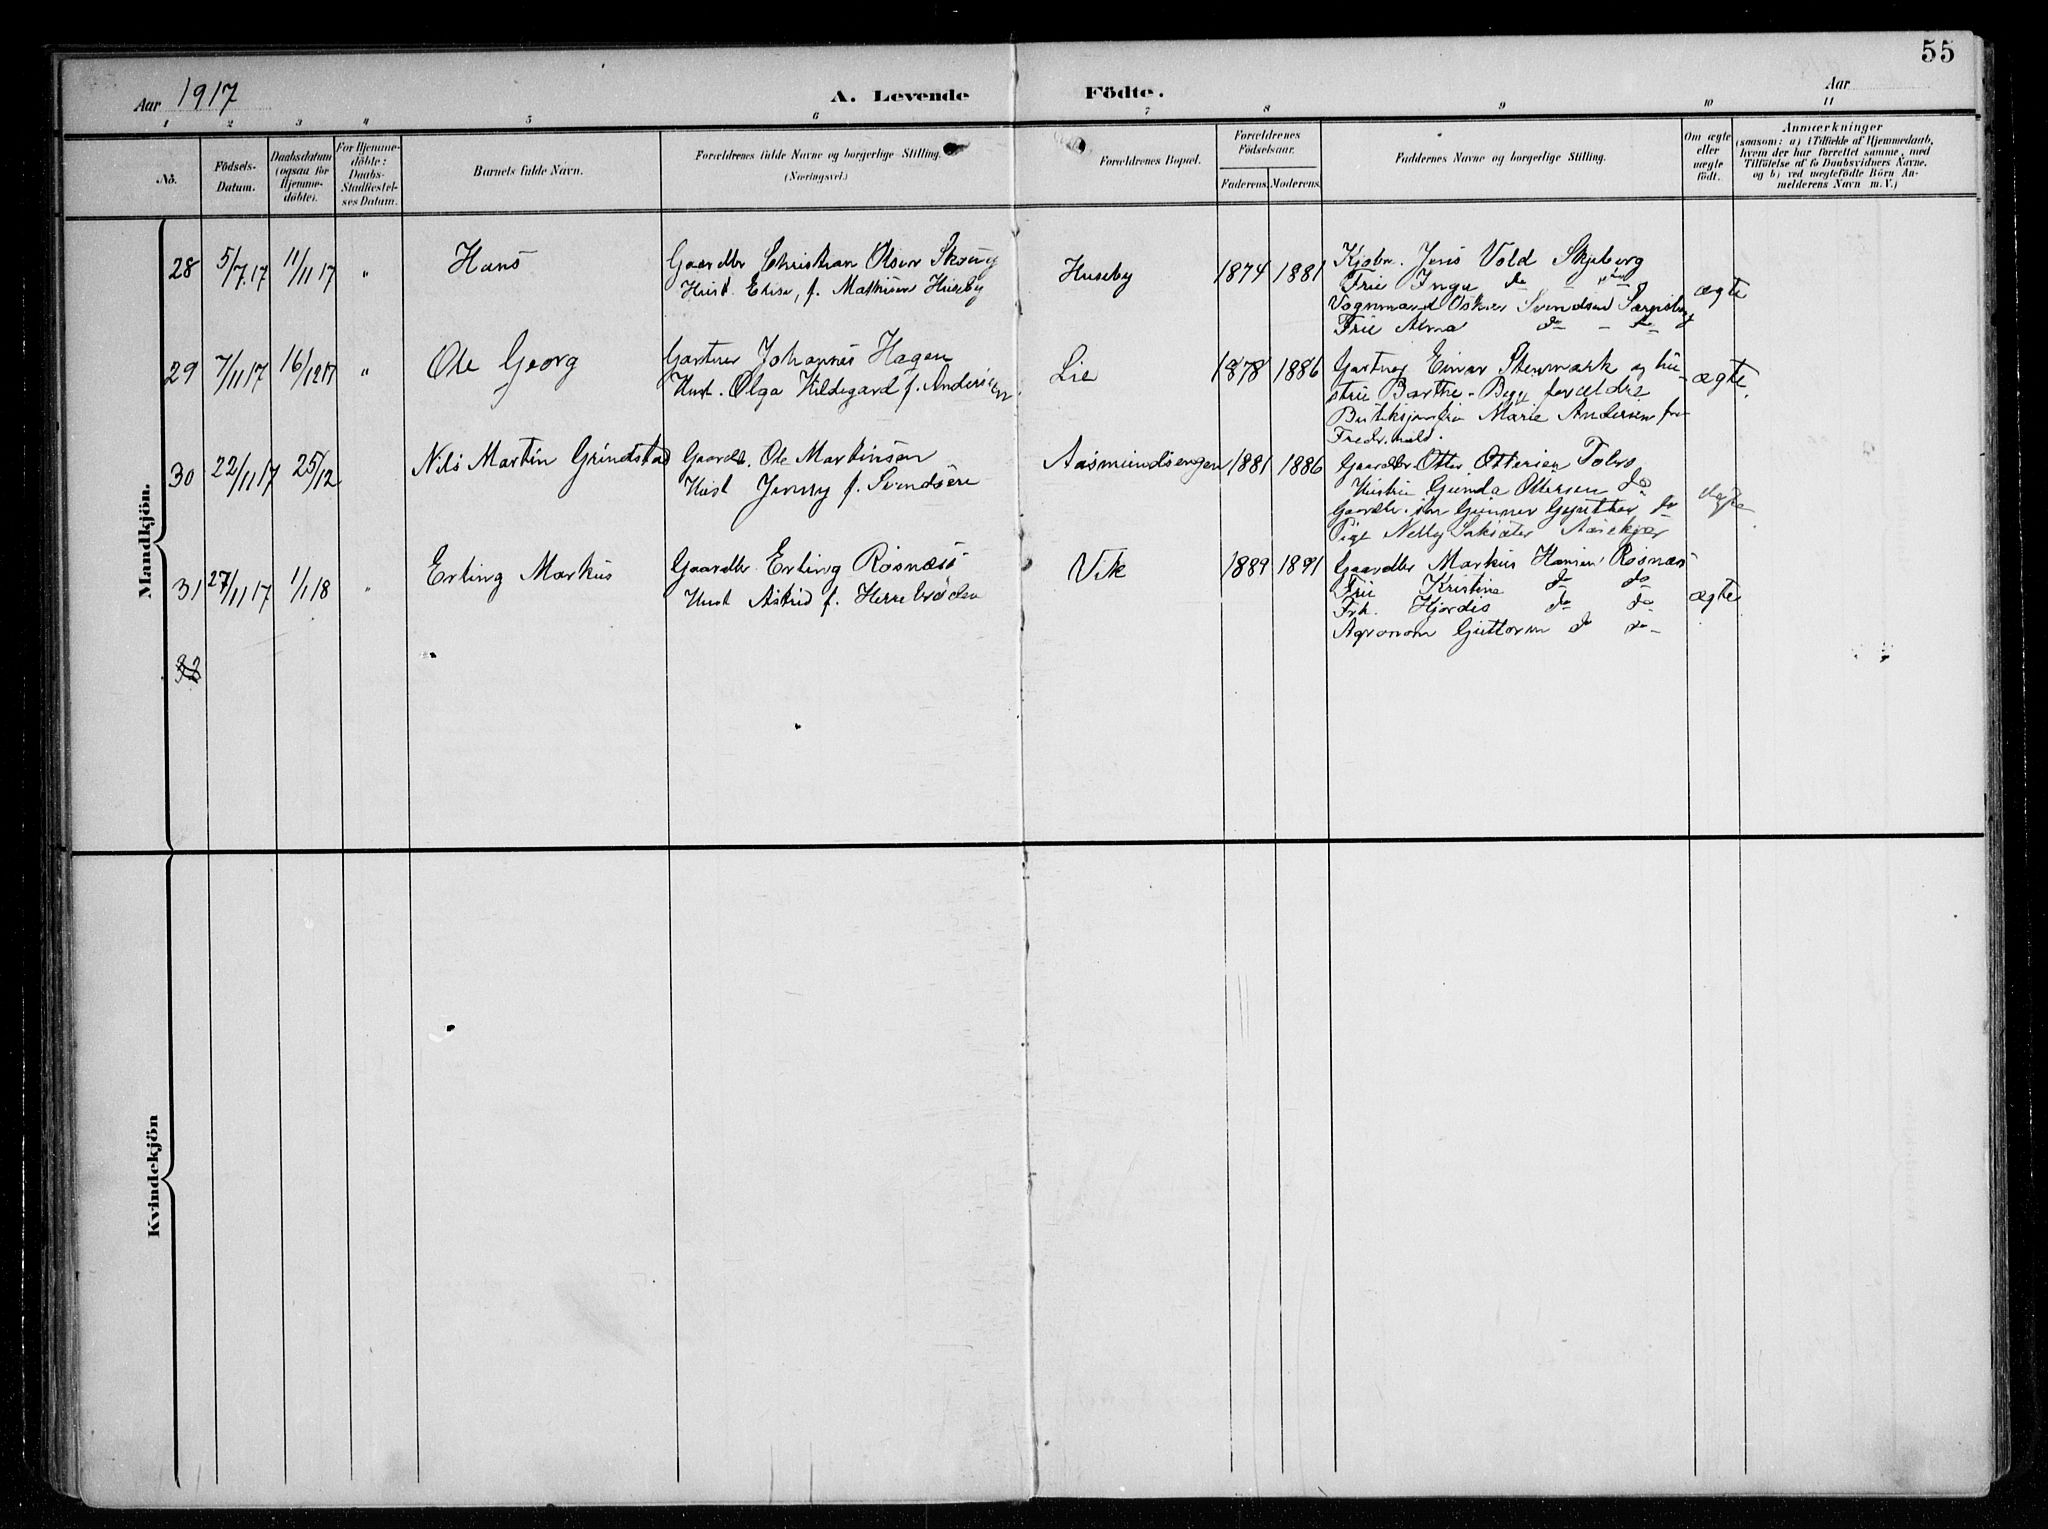 55
Aar 1917
A. Levende Födte.
Aar
1 2 3 4 5 6 7 8 9 10 11
No.
Födsels-Datum.
Daabsdatum (ogsaa for Hjemme-döbte).
For Hjemme-döbte: Daabs-Stadfæstel-ses Datum.
Barnets fulde Navn.
Forældrenes fulde Navne og borgerlige Stilling.
(Næringsvei.)
Forældrenes Bopæl.
Forældrenes Födselsaar.
Faderens. Moderens.
Faddernes Navne og borgerlige Stilling.
Om ægte eller uægte födt.
Anmærkninger
(saasom: a) i Tilfælde af Hjemmedaab,
hvem der har forrettet samme, med
Tilföielse af to Daabsvidners Navne.
og b) ved uægtefödte Börn An-
melderens Navn m. V.)
Mandkjön.
28 5/7.17 11/11 17 " Hans
Gaardbr Christian Olsen
Hust. Elise, f. Mathisen Huseby
Huseby 1874 1881
Kjøbm. Jens Vold Skjeberg
Frue Inga do
Vognmand Oskar Svendsen Sarpsborg
Frue Alma do - do
ægte
29 7/11 17 16/12 17 " Ole Georg
Gartner Johannes Hagen
Hust. Olga Hildegard f. Andersen
Lie 1878 1886
Gartner Einar Stenmark og hu-
strue Barthe - Begge forældre
Marie Andersen fra
Fredr.hald.
ægte
30 22/11 17 25/12 Nils Martin Grindstad
Gaardb. Ole Martinsen
Hust Jenny f. Svendsen
Aasmundsengen 1881 1886
Gaardbr. Otter Ottersen
Hustrue Gunda Ottersen do
Gaardbr. søn Gunner do
Pige Nelly
ægte
31 27/11 17 1/1 18 " Erling Markus
Gaardbr Erling Rosnæss
Hust Astrid f. Herrebrøden
Vik 1889 1891
Gaardbr Markus Hansen Rosnæs
Frue Kristine do do
Frk. Hjordis do do
Agronom Guttorm do do
ægte
32
Kvindekjön